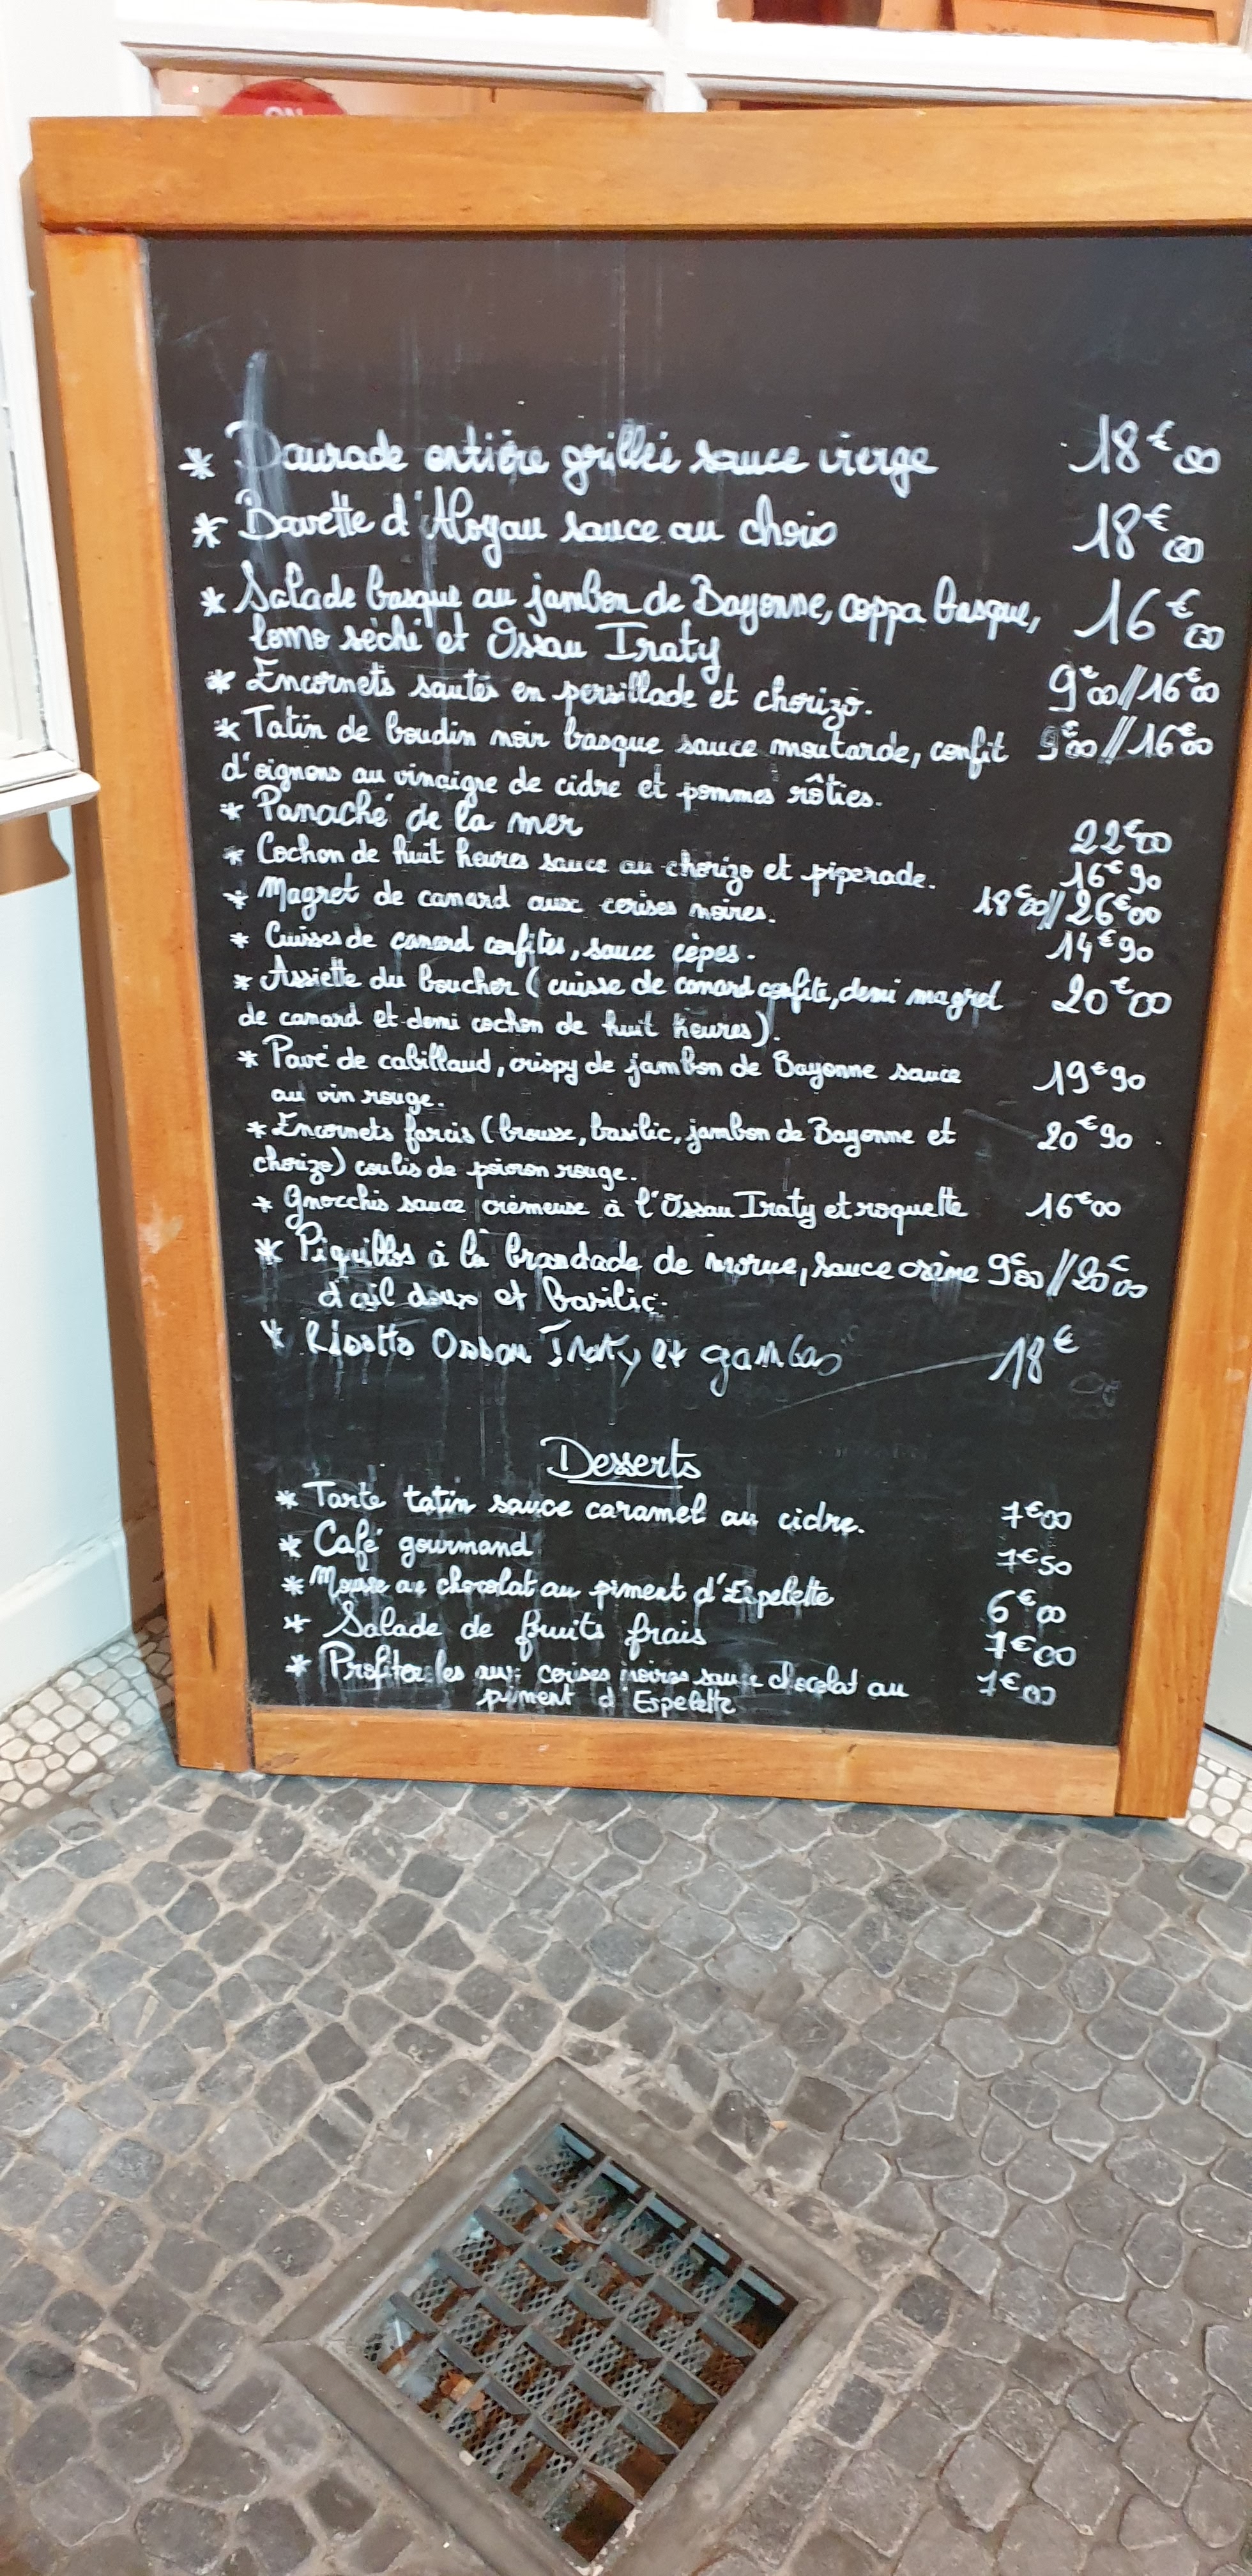 ON
* Daurade entière grillée sauce vierge 18€00
* Bavette d'Aloyau sauce au choix 18€00
* Salade basque au jambon de Bayonne, coppa basque, 16€00
lomo séché et Ossau Iraty
* Encornets sautés en persillade et chorizo. 9€00//16€00
* Tatin de boudin noir basque sauce moutarde, confit 9€00//16€00
d'oignons au vinaigre de cidre et pommes rôties.
* Panaché de la mer 22€00
* Cochon de huit heures sauce au chorizo et piperade. 16€90
* Magret de canard aux cerises noires. 18€00//26€00
* Cuisses de canard confites, sauce cèpes. 14€90
* Assiette du boucher (cuisse de canard confite, demi magret 20€00
de canard et demi cochon de huit heures).
* Pavé de cabillaud, crispy de jambon de Bayonne sauce 19€90
au vin rouge.
* Encornets farcis (brousse, basilic, jambon de Bayonne et 20€90
chorizo) coulis de poivron rouge.
* Gnocchis sauce crèmeuse à l'Ossau Iraty et roquette 16€00
* Piquillos à la brandade de morue, sauce crème 9€00//20€00
d'ail doux et basilic.
* Risotto Ossau Iraty et gambas 18€
Desserts
* Tarte tatin sauce caramel au cidre. 7€00
* Café gourmand 7€50
* Mousse au chocolat au piment d'Espelette 6€00
* Salade de fruits frais 7€00
* Profiteroles aux cerises noires sauce chocolat au 7€00
piment d'Espelette